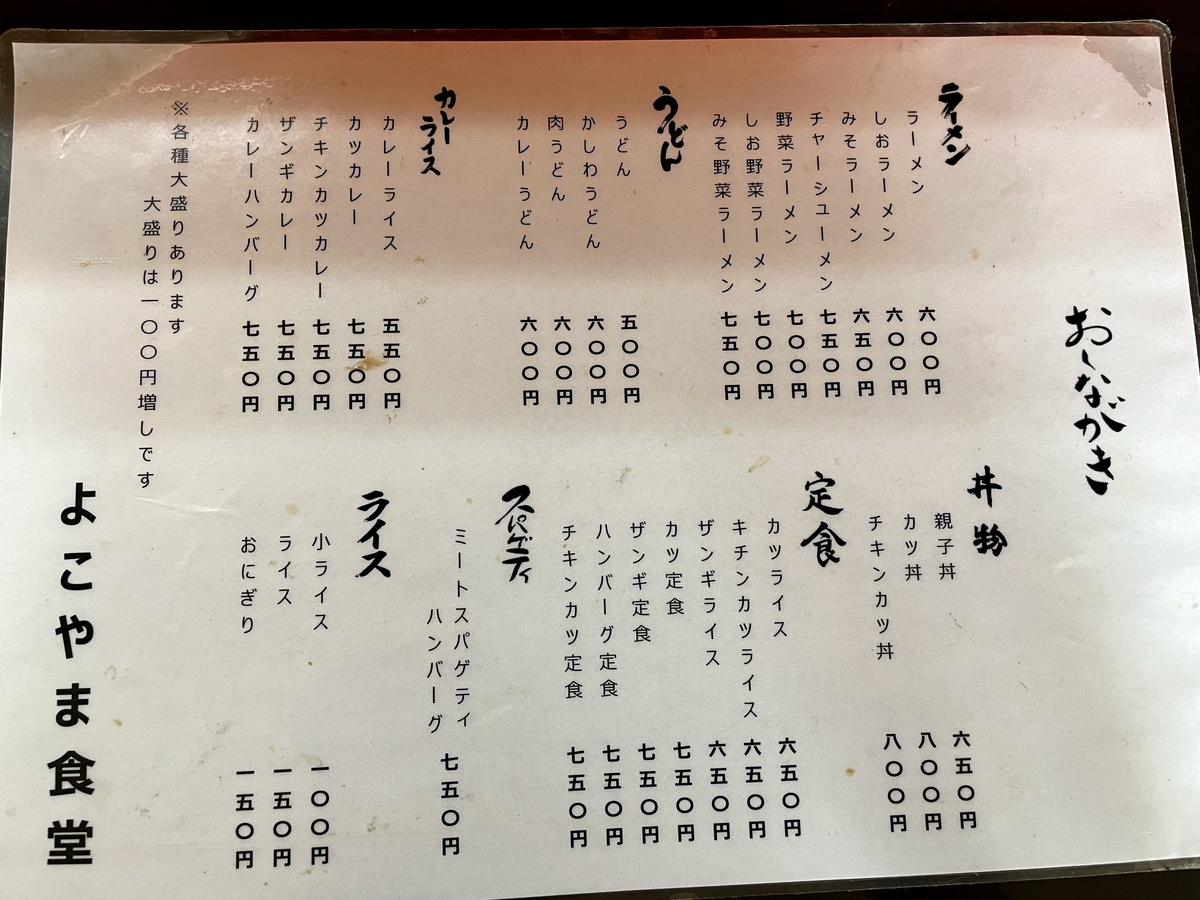 おしながき
ラーメン
ラーメン 六〇〇円
しおラーメン 六〇〇円
みそラーメン 六五〇円
チャーシューメン 七五〇円
野菜ラーメン 七〇〇円
しお野菜ラーメン 七〇〇円
みそ野菜ラーメン 七五〇円
うどん
うどん 五〇〇円
かしわうどん 六〇〇円
肉うどん 六〇〇円
カレーうどん 六〇〇円
カレーライス
カレーライス 五五〇円
カツカレー 七五〇円
チキンカツカレー 七五〇円
ザンギカレー 七五〇円
カレーハンバーグ 七五〇円
※各種大盛りあります
大盛りは一〇〇円増しです
丼物
親子丼 六五〇円
カツ丼 八〇〇円
チキンカツ丼 八〇〇円
定食
カツライス 六五〇円
キチンカツライス 六五〇円
ザンギライス 六五〇円
カツ定食 七五〇円
ザンギ定食 七五〇円
ハンバーグ定食 七五〇円
チキンカツ定食 七五〇円
スパゲティ
ミートスパゲティ
ハンバーグ 七五〇円
ライス
小ライス 一〇〇円
ライス 一五〇円
おにぎり 一五〇円
よこやま食堂